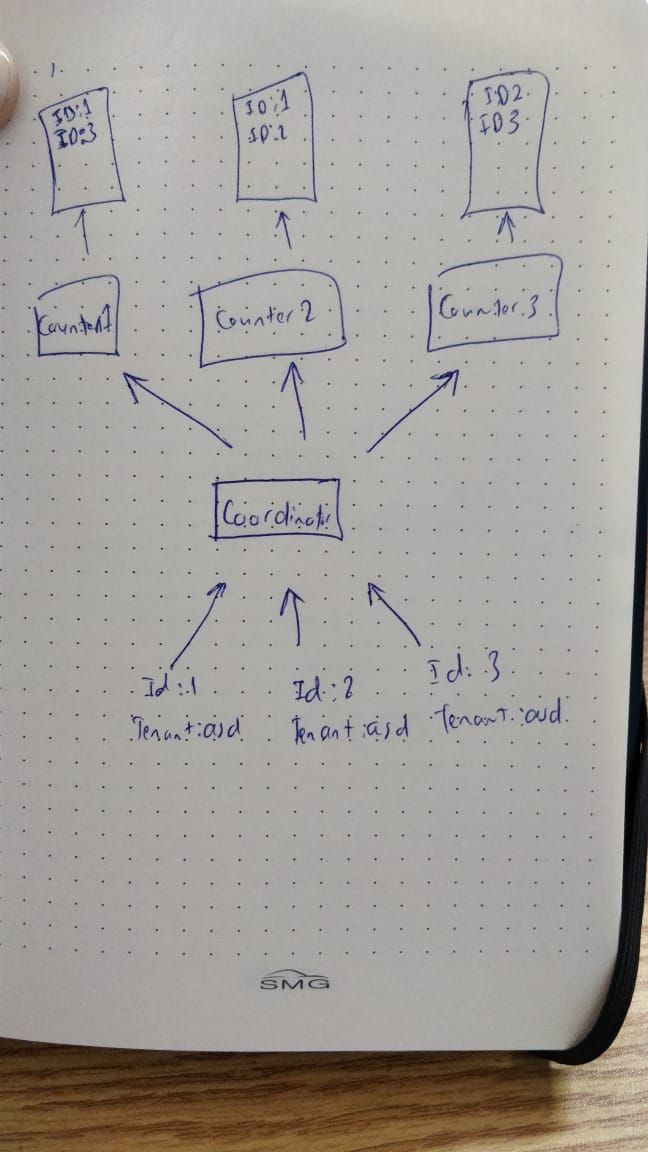 1.
ID:1
ID:3
ID:1
ID:2
ID2
ID3
Counter1
Counter 2
Counter 3
Coordinator
Id:1
Tenant:asd
Id:2
Tenant:asd
Id:3
Tenant:asd
SMG